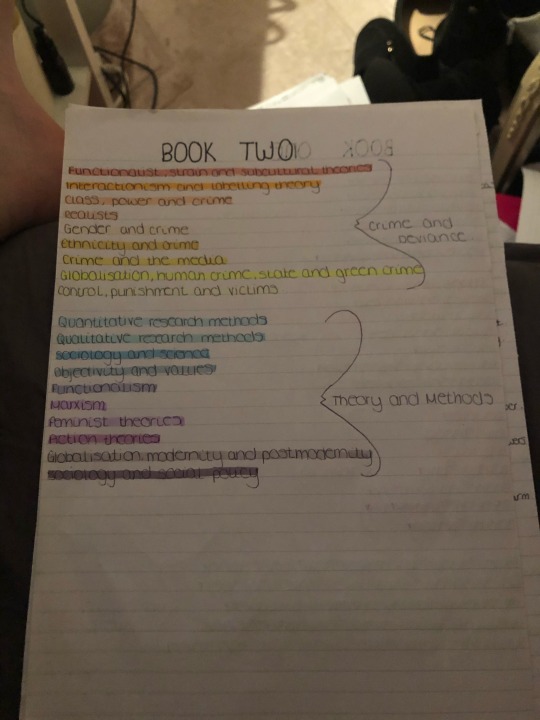 BOOK TWO
Functionalist, strain and subcultural theories
Interactionism and labelling theory
Class, power and crime
Realists
Gender and crime
Ethnicity and crime
Crime and the media
Globalisation, human crime, state and green crime
Control, punishment and victims
Crime and
Deviance
Quantitative research methods
Qualitative research methods
Sociology and science
Objectivity and values
Functionalism
Marxism
Feminist theories
Action theories
Globalisation modernity and postmodernity
Sociology and social policy
Theory and Methods